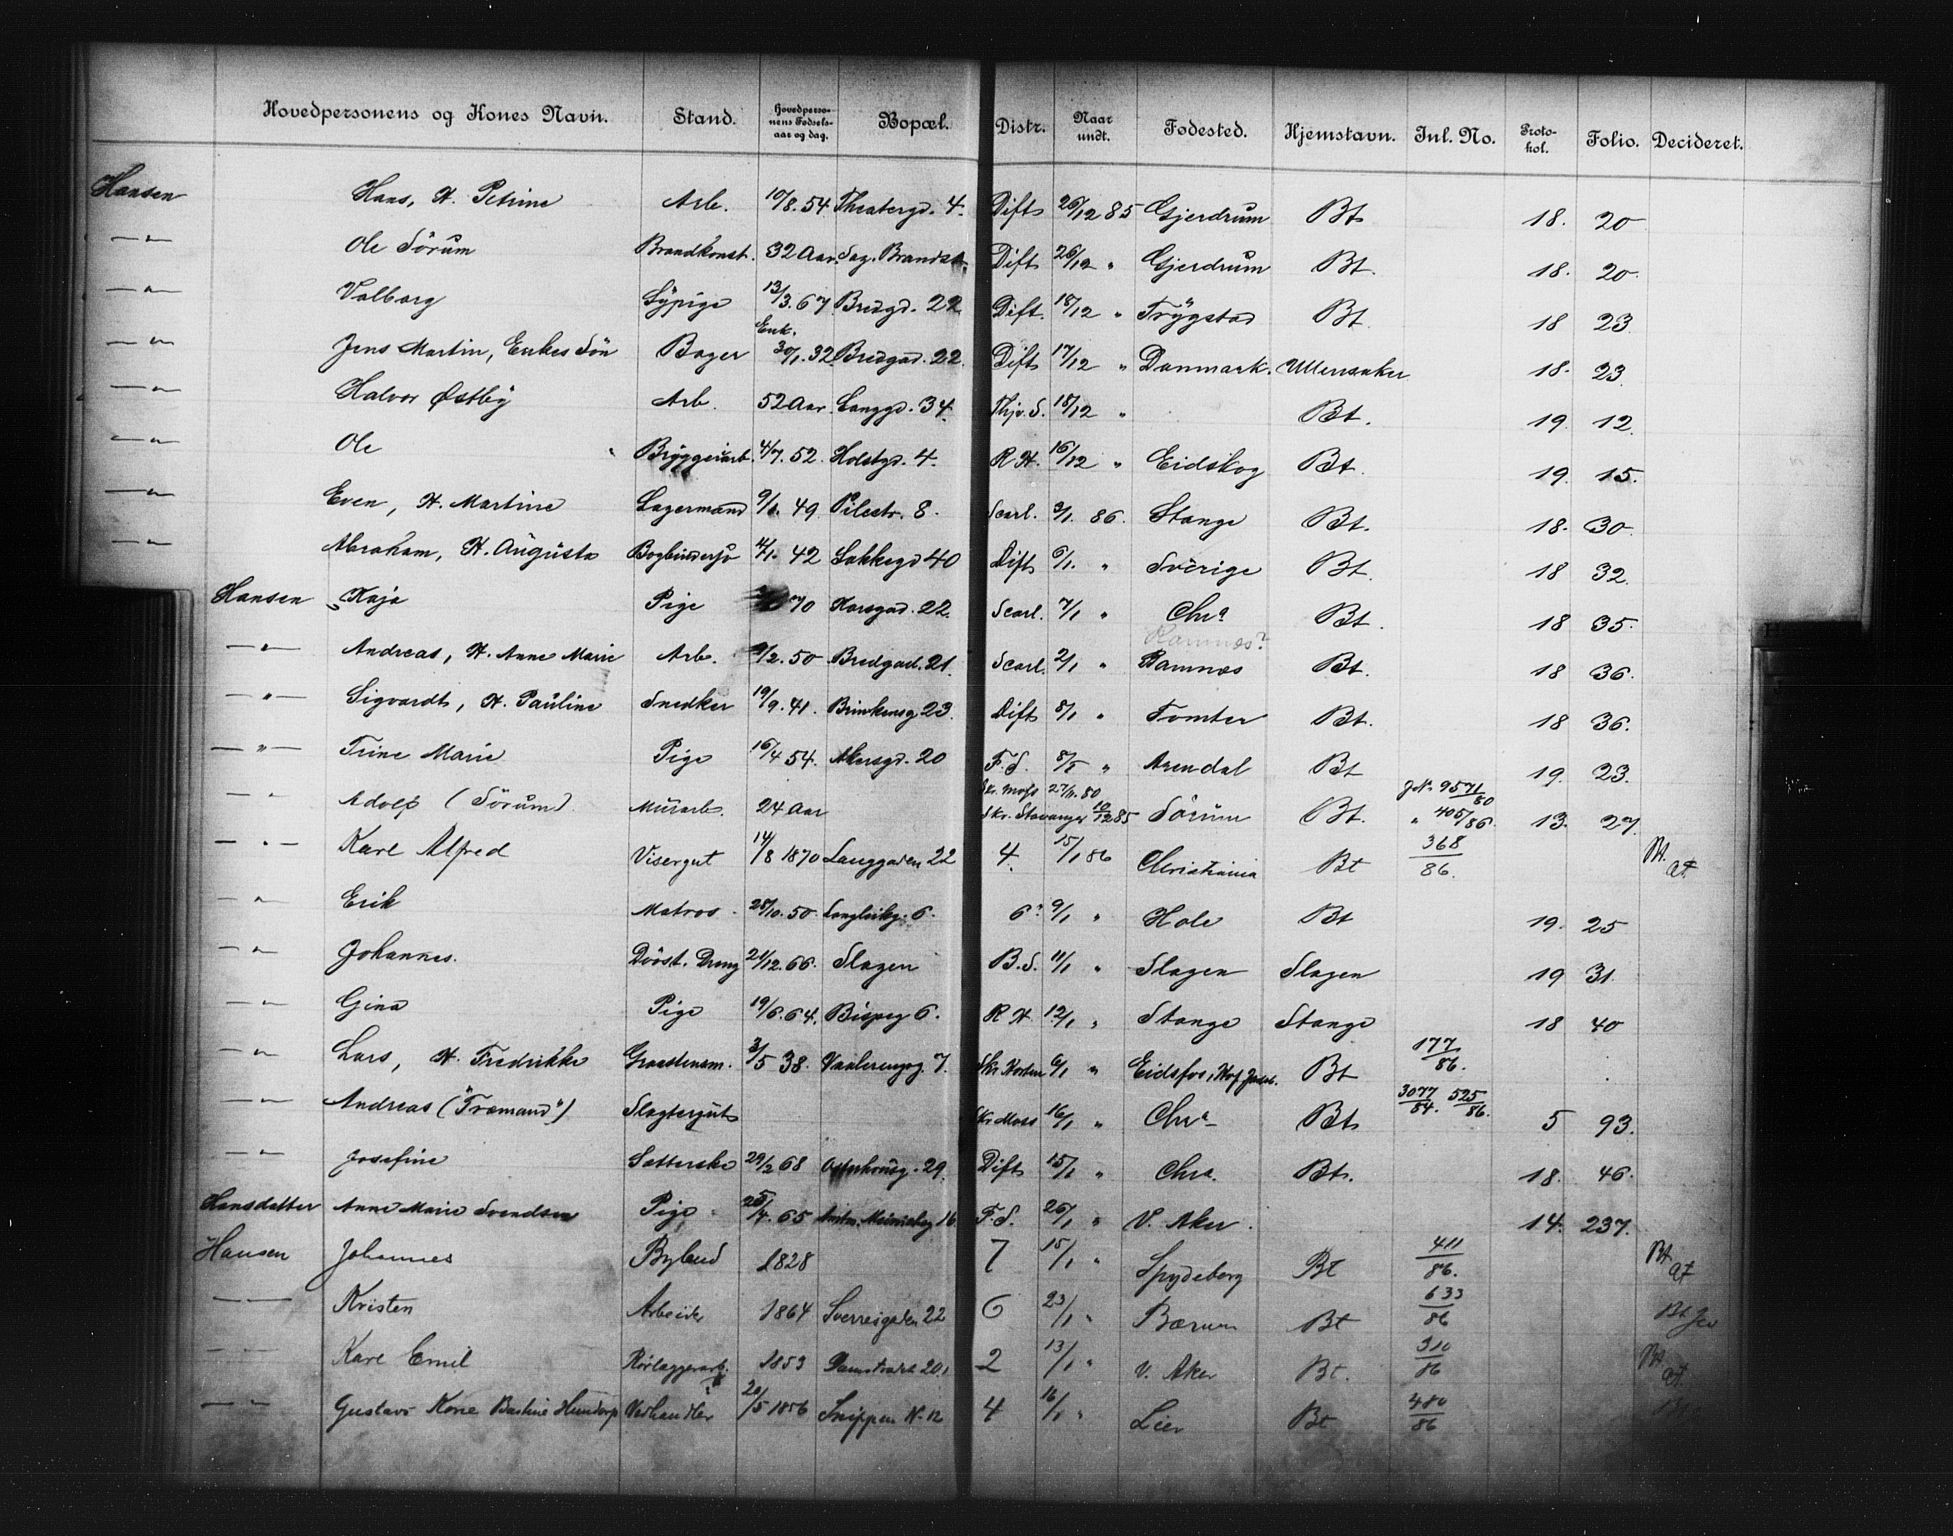 Hovedpersonens og Kones Navn. Stand. Hovedpersonens Fødselsaar og dag. Bopæl. Distr. Naar undt. Fødested. Hjemstavn. Inl. No. Protokol. Folio. Decideret.
Hansen Hans, H. Petrine Arb. 10/8. 54 Theatergd. 4. Dift 26/12 85 Gjerdrum Bt 18. 20
—"— Ole Sörum Brandkonst. 32 Aar. Sag. Brandst. Dift 26/12 " Gjerdrum Bt. 18. 20.
—"— Valborg Sypige 13/3. 67 Bredgd. 22 Dift. 18/12 " Trygstad Bt. 18 23.
—"— Jens Martin, Enkes Sön Bager Enk. 30/1. 32. Bredgad. 22. Dift 17/12 " Danmark. Ullensaker 18. 23.
—"— Halvor Østby Arb. 52 Aar. Langgd. 34. Thjv. S. 18/12 " Bt. 19. 12.
—"— Ole Bryggeriarb. 4/7. 52. Holstgd. 4. R H. 16/12 " Eidskog Bt. 19. 15.
—"— Even, H. Martine Lagermand 9/1. 49 Pilestr. 8. Scarl. 3/1. 86. Stange Bt. 18. 30.
—"— Abraham, H. Augusta Bogbindersv 42 Lakkegd 40 Dift 6/1. " Sverige Bt. 18 32.
Hansen Kaja Pige 70 Korsgad. 22. Scarl. 7/1 " Chra Bt. 18 35.
Ramnæs?
—"— Andreas, H. Anne Marie Arb. /2. 50 Bredgad. 21. Scarl. 2/1 " Ramnæs Bt. 18 36.
—"— Sigvardt, H. Pauline Snedker 19/9. 41. Brinkensg. 23. Dift 8/1 " Tomter Bt. 18 36.
—"— Trine Marie Pige 16/4 54. Akersgd. 20 F. S. 8/5 " Arendal Bt 19. 23.
" Adolf (Sörum) Murarb. 24 Aar Skr. Moss 27/11. 80 Skr. Stavanger 10/12 85 Sörum Bt. J. N. 9571/80 " 405/86. 13. 27.
—"— Karl Alfred Visergut 14/8 1870 Langgaden 22 4. 15/1 86 Christiania Bt 368/86. Bt. at.
—"— Erik Matros 25/10. 50. Langleikg. 6. 6? 9/1 " Hole Bt 19. 25
—"— Johannes. Dövst. Dreng 21/12. 66. Slagen B. S. 11/1 " Slagen Slagen 19 31.
—"— Gina Pige 19/6. 64. Bispeg 6. R H. 12/1 " Stange Stange 18 40
—"— Lars, H. Fredrikke Graastensm. 3/5 38. Vaalerengag. 7. Skr Horten 6/1 " Eidsfos, Hof Jarlsb. Bt 177/86.
—"— Andreas ("Træmand") Slagtergut Skr Moss 16/1 " Chra Bt 3077/84. 525/86. 5 93.
—"— Josefine Sætterske 29/2 68 Osterhausg. 29. Dift 15/1 " Chra. Bt. 18. 46.
Hansdatter Anne Marie Svendsen Pige 25/4. 65 16 F. S. 26/1 " V. Aker. 14. 237.
Hansen Johannes Bylud 1828 7 15/1 " Spydeberg Bt 411/86. Bt. at
—— Kristen Arbeider 1864 Sverresgaden 22 6 23/1 " Bærum Bt 633/86 Bt
—— Karl Emil Rørlæggerarb. 1853 Damstrædet 20. 2 13/1 " V. Aker Bt. 310/86 Bt. at.
—"— Gustav Kone Bastine Hundorp Vedhandler 20/5 1856 Snippen N. 12 4 16/1 " Lier Bt 480/86 Bt